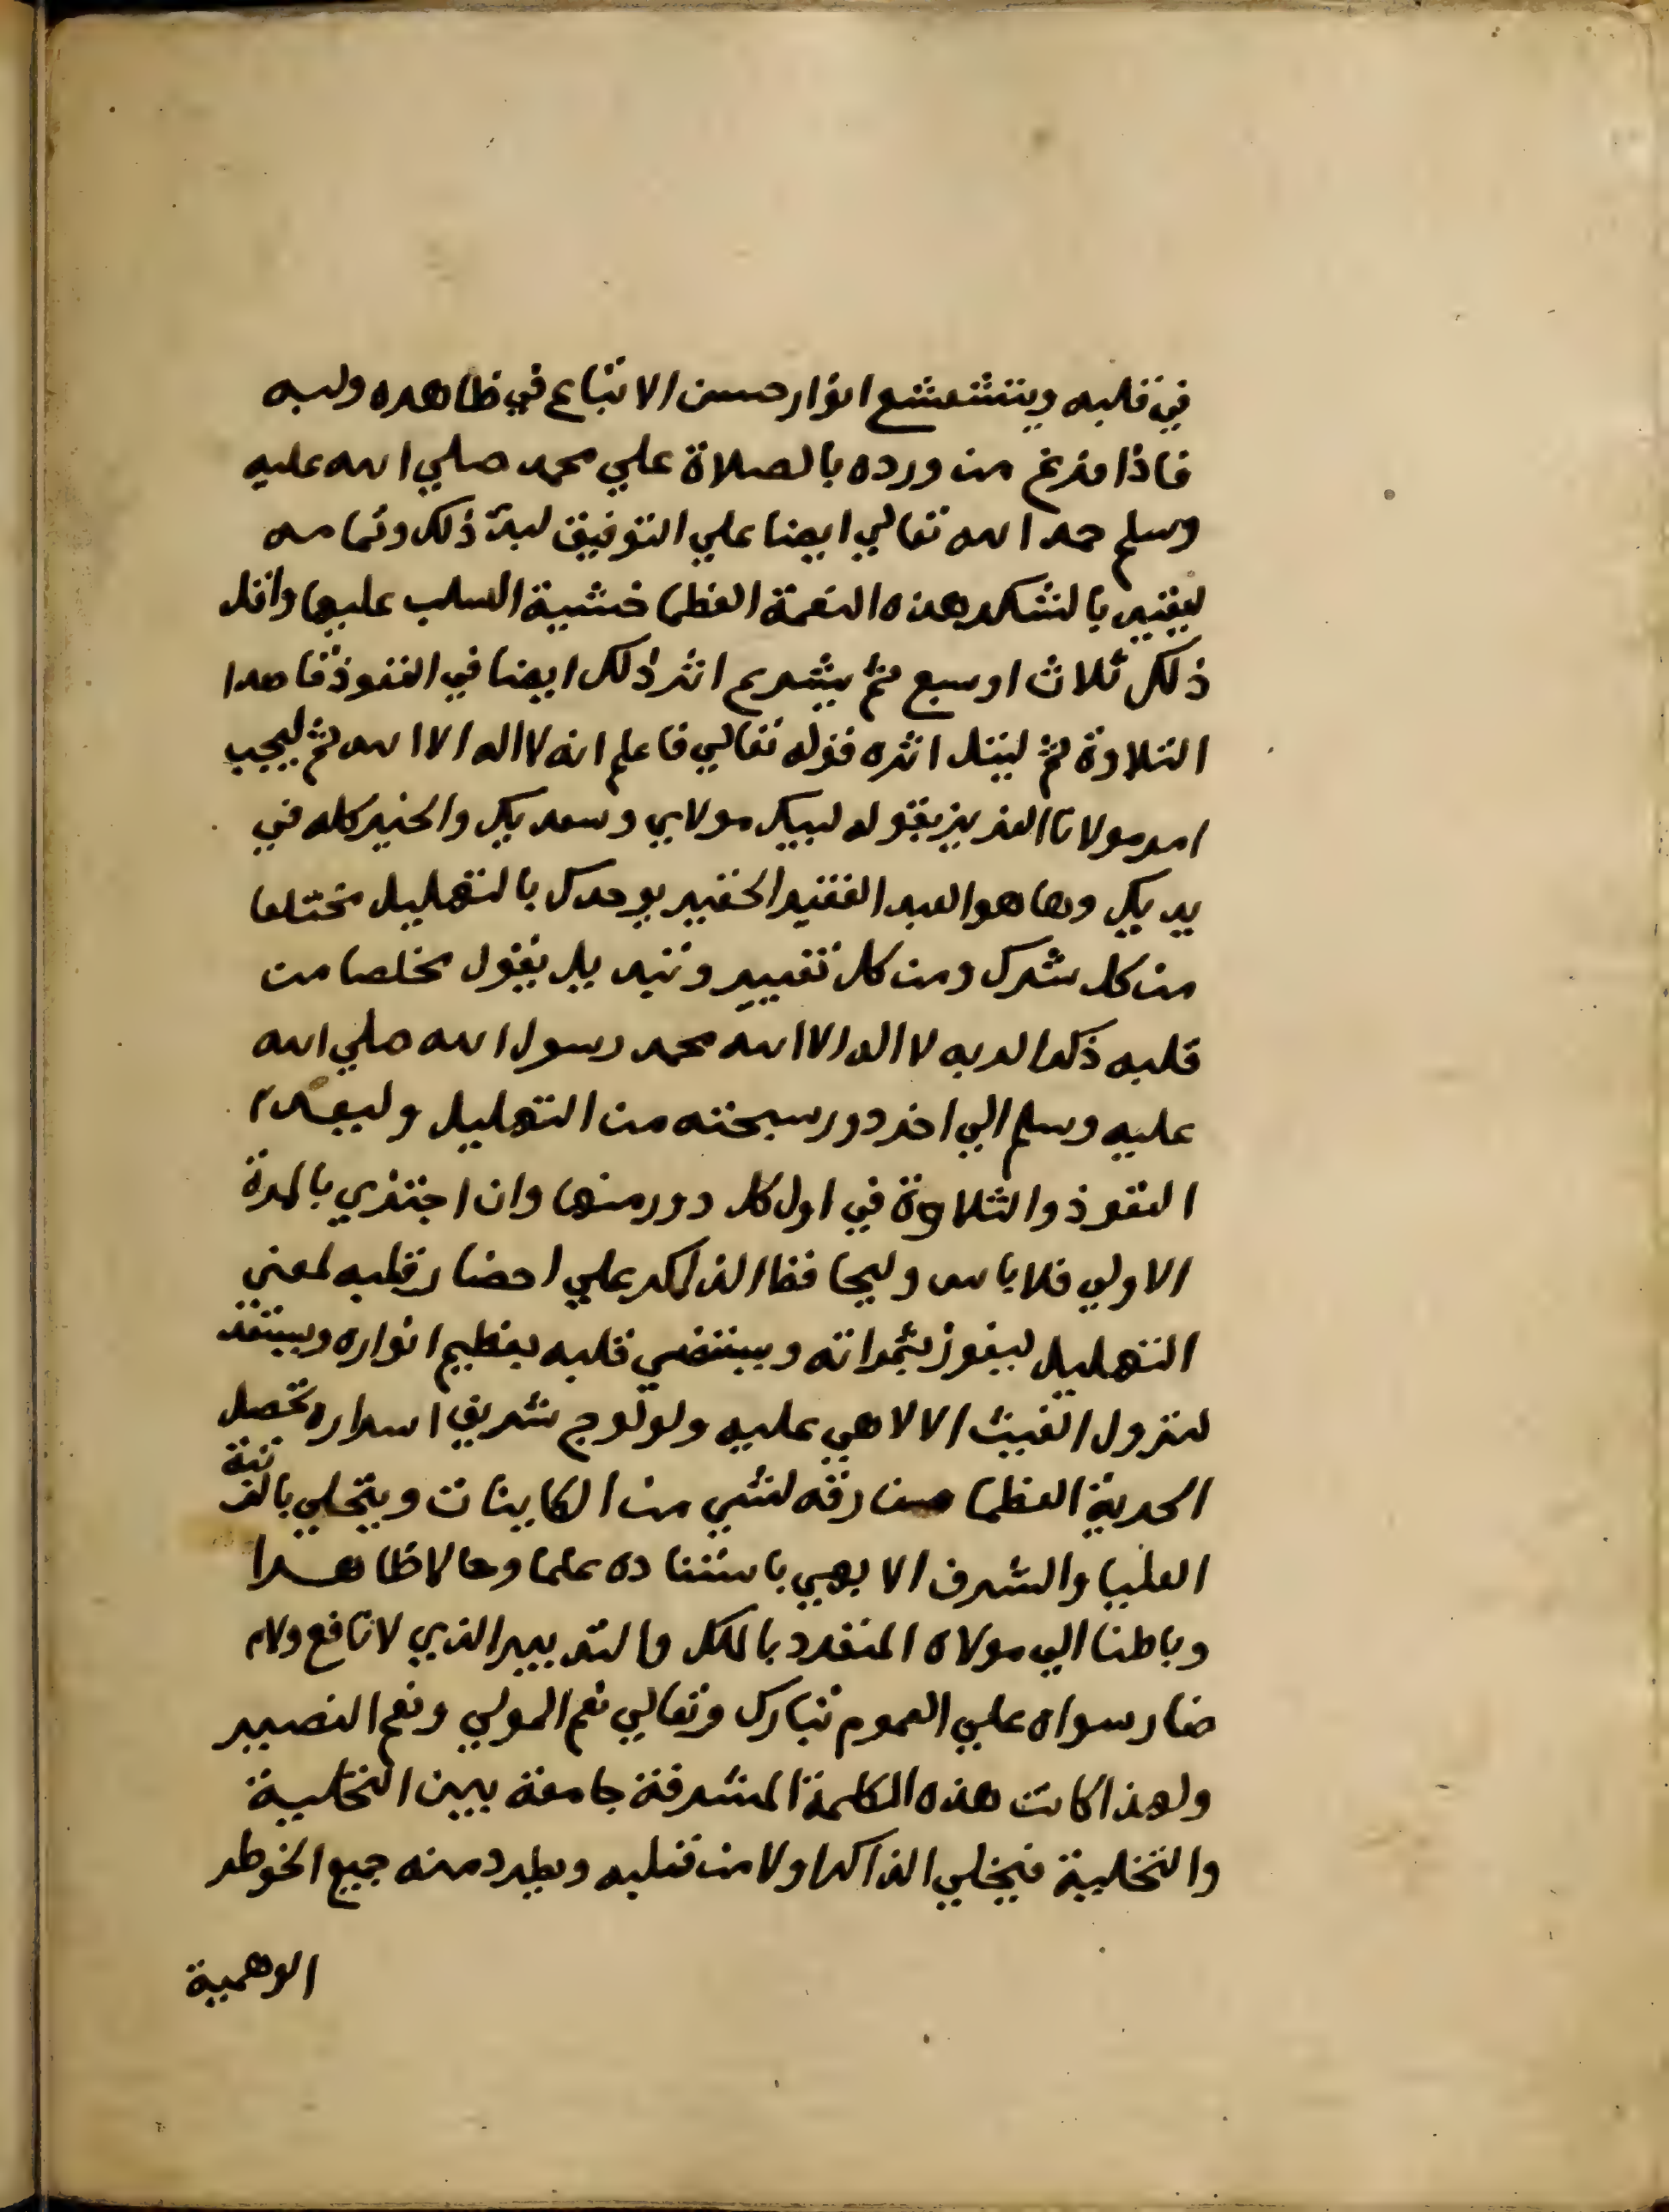 في قلبه ويتشعشع انوار حسن الاتباع في ظاهره ولبه
فاذا فرغ من ورده بالصلاة علي محمد صلي الله عليه
وسلم حمد الله تعالي ايضا علي التوفيق لبدء ذلك وتمامه
ليقيد بالشكر هذه النعمة العظما خشية السلب عليها واقل
ذلك ثلاث او سبع ثم يشرع اثر ذلك ايضا في التعوذ قاصدا
التلاوة ثم ليتل اثره قوله تعالي فاعلم انه لا اله الا الله ثم ليجب
امر مولانا العزيز بقوله لبيك مولاي وسعديك والخير كله في
يديك وها هو العبد الفقير الحقير يوحدك بالتهليل
من كل شرك ومن كل تغيير وتبديل يقول مخلصا من
قلبه ذكرا لربه لا اله الا الله محمد رسول الله صلي الله
عليه وسلم الي اخر دور سبحته من التهليل وليعد
التعوذ والتلاوة في اول كل دور منها وان اجتزي بالمرة
الاولي فلا باس وليحافظ الذاكر علي احضار قلبه لمعني
التهليل ليفوز بثمراته ويستضي قلبه بعظيم انواره ويستعد
لنزول الغيث الالاهي عليه ولولوج شريف اسراره تحصل
الحرية العظما من رقه لشي من الكاينات ويتحلي بالمرتبة
العليا والشرف الابهي باستناده علما وحالا ظاهرا
وباطنا الي مولاه المنفرد بالملك والتدبير الذي لا نافع ولا
ضار سواه علي العموم تبارك وتعالي نعم المولي ونعم النصير
ولهذا كانت هذه الكلمة المشرفة جامعة بين التخلية
والتحلية فيخلي الذاكر اولا من قلبه ويطرد منه جميع الخوطر
الوهمية